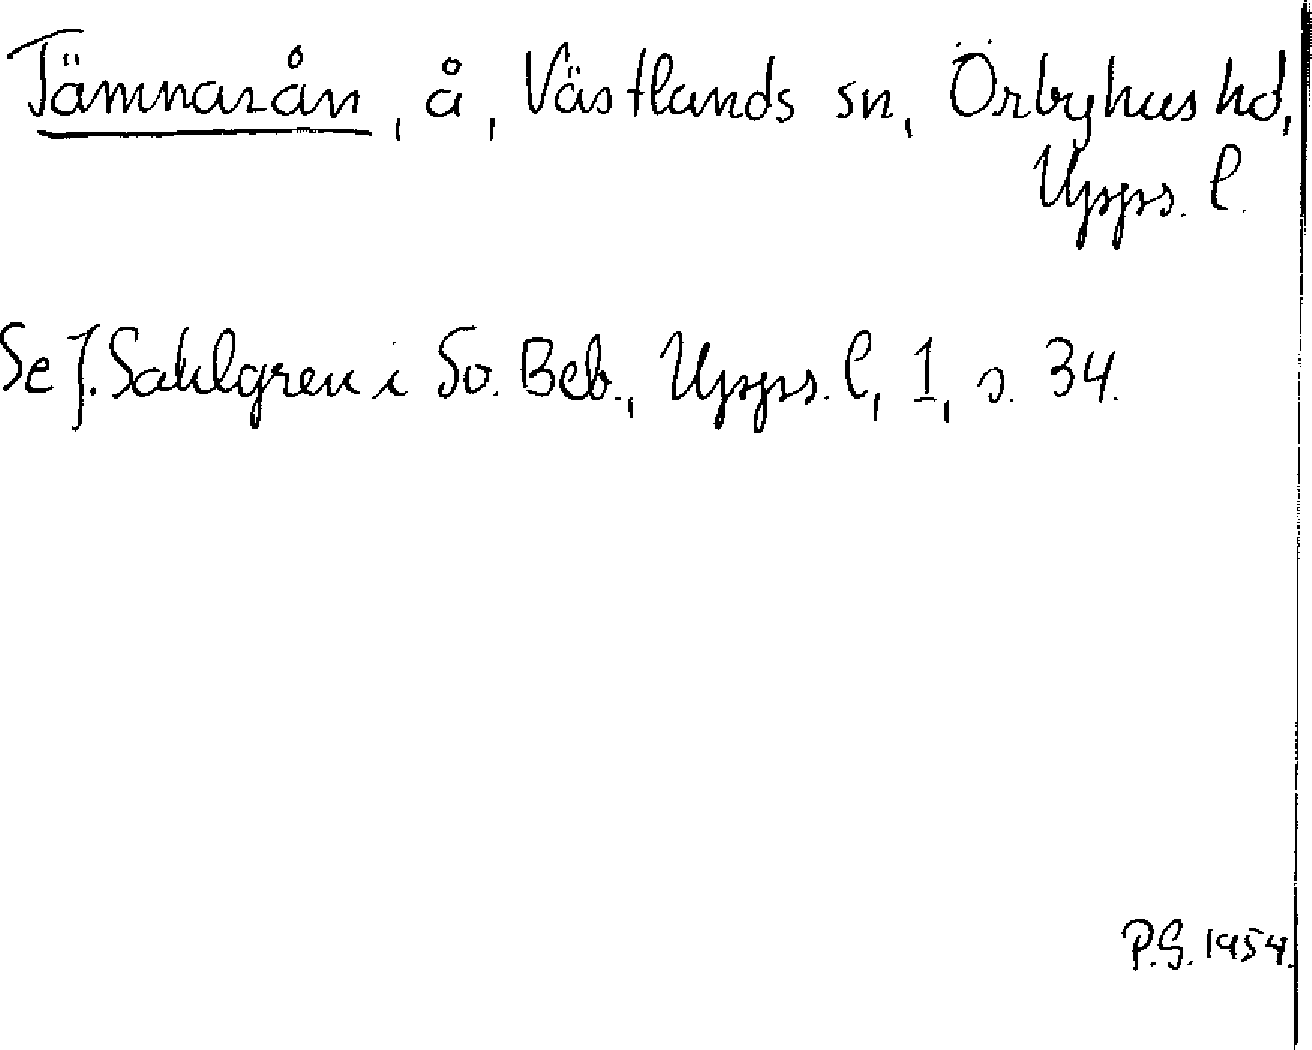 Tämnarån, å, Västlands sn, Örbyhus hd,
Upps. l.
Se J. Sahlgren i Sv. Beb., Upps. l, 1, s. 34.
P.G. 1954.